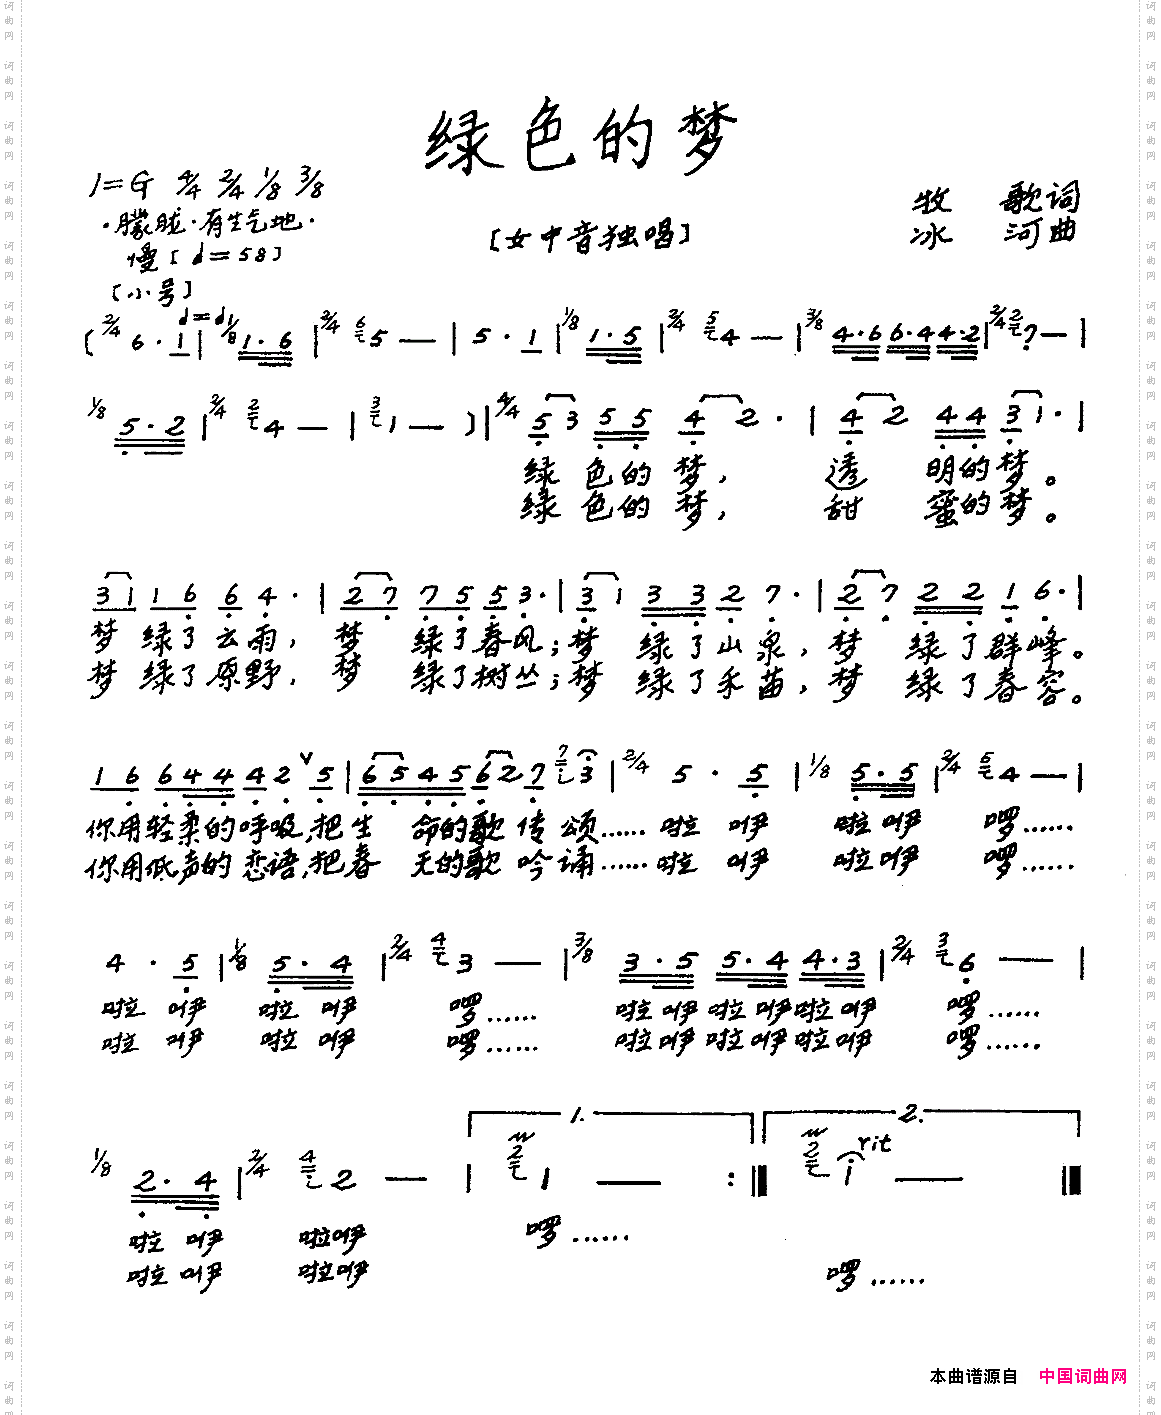 绿色的梦
1=G 4/4 2/4 1/8 3/8
·朦胧·有生气地·
慢[♩=58]
[小号]
[女中音独唱]
牧 歌词
冰 河曲
(2/4 6·1 | 1/8 1·6 | 2/4 5 — | 5·1 | 1/8 1·5 | 2/4 4 — | 3/8 4·6 6·4 4·2 | 2/4 7 — |
1/8 5·2 | 2/4 4 — | 1 — ) | 4/4 5 3 5 5 4 2· | 4 2 4 4 3 1· |
绿 色的 梦, 透 明的梦。
绿 色的 梦, 甜 蜜的梦。
3 1 1 6 6 4· | 2 7 7 5 5 3· | 3 1 3 3 2 7· | 2 7 2 2 1 6· |
梦 绿了云雨, 梦 绿了春风;梦 绿了山泉, 梦 绿了群峰。
梦 绿了原野, 梦 绿了树丛;梦 绿了禾苗, 梦 绿了春容。
1 6 6 4 4 4 2 ∨ 5 | 6 5 4 5 6 2 7 3 | 2/4 5 · 5 | 1/8 5·5 | 2/4 4 — |
你用轻柔的呼吸,把生 命的歌 传 颂…… 啦 咿 啦咿 啰……
你用低声的恋语,把春 天的歌 吟 诵…… 啦 咿 啦咿 啰……
4 · 5 | 1/8 5·4 | 2/4 3 — | 3/8 3·5 5·4 4·3 | 2/4 6 — |
啦 咿 啦 咿 啰…… 啦咿啦咿啦咿 啰……
啦 咿 啦 咿 啰…… 啦咿啦咿啦咿 啰……
1. 2.
1/8 2·4 | 2/4 2 — | 1 — :‖ 1 — ‖ rit
啦 咿 啦咿 啰……
啦 咿 啦咿 啰……
本曲谱源自 中国词曲网